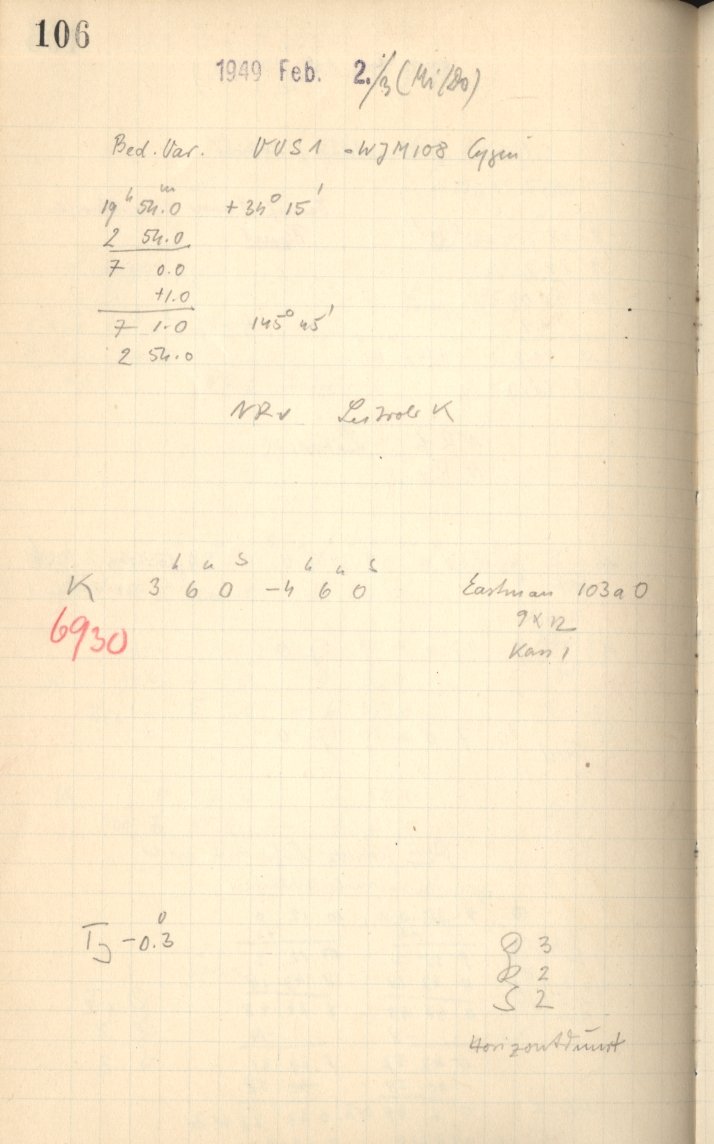 106
1949 Feb. 2./3 (Mi/Do)
Bed. Var. VVS1 - WJM108 Cygni
19 h 54.0 m + 34° 15'
2 54.0
7 0.0
+1.0
7 1.0 145° 45'
2 54.0
K
K 3 h 6 m 0 s - 4 h 6 m 0 s Eastman 103a O
6930 9 x 12
Kass 1
T J - 0.3°
3
R 2
S 2
Horizontdunst